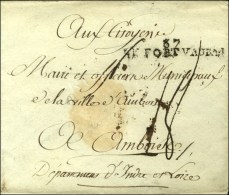 Aux Citoyens
87
FORT VAUBAN
Maire et officiers Municipaux
de la ville d'Amboise
A Amboise
Département d'Indre et Loire